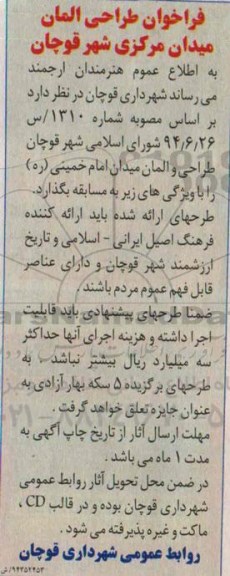 فراخوان طراحی المان
میدان مرکزی شهر قوچان
به اطلاع عموم هنرمندان ارجمند
می رساند شهرداری قوچان در نظر دارد
بر اساس مصوبه شماره ۱۳۱۰/س
۹۴/۶/۲۶ شورای اسلامی شهر قوچان
طراحی و المان میدان امام خمینی (ره)
را با ویژگی های زیر به مسابقه بگذارد.
طرحهای ارائه شده باید ارائه کننده
فرهنگ اصیل ایرانی - اسلامی و تاریخ
ارزشمند شهر قوچان و دارای عناصر
قابل فهم عموم مردم باشند.
ضمنا طرحهای پیشنهادی باید قابلیت
اجرا داشته و هزینه اجرای آنها حداکثر
سه میلیارد ریال بیشتر نباشد. به
طرحهای برگزیده ۵ سکه بهار آزادی به
عنوان جایزه تعلق خواهد گرفت.
مهلت ارسال آثار از تاریخ چاپ آگهی به
مدت ۱ ماه می باشد.
در ضمن محل تحویل آثار روابط عمومی
شهرداری قوچان بوده و در قالب CD ،
ماکت و غیره پذیرفته می شود.
روابط عمومی شهرداری قوچان
۹۴۳۵۲۴۵۳/ش